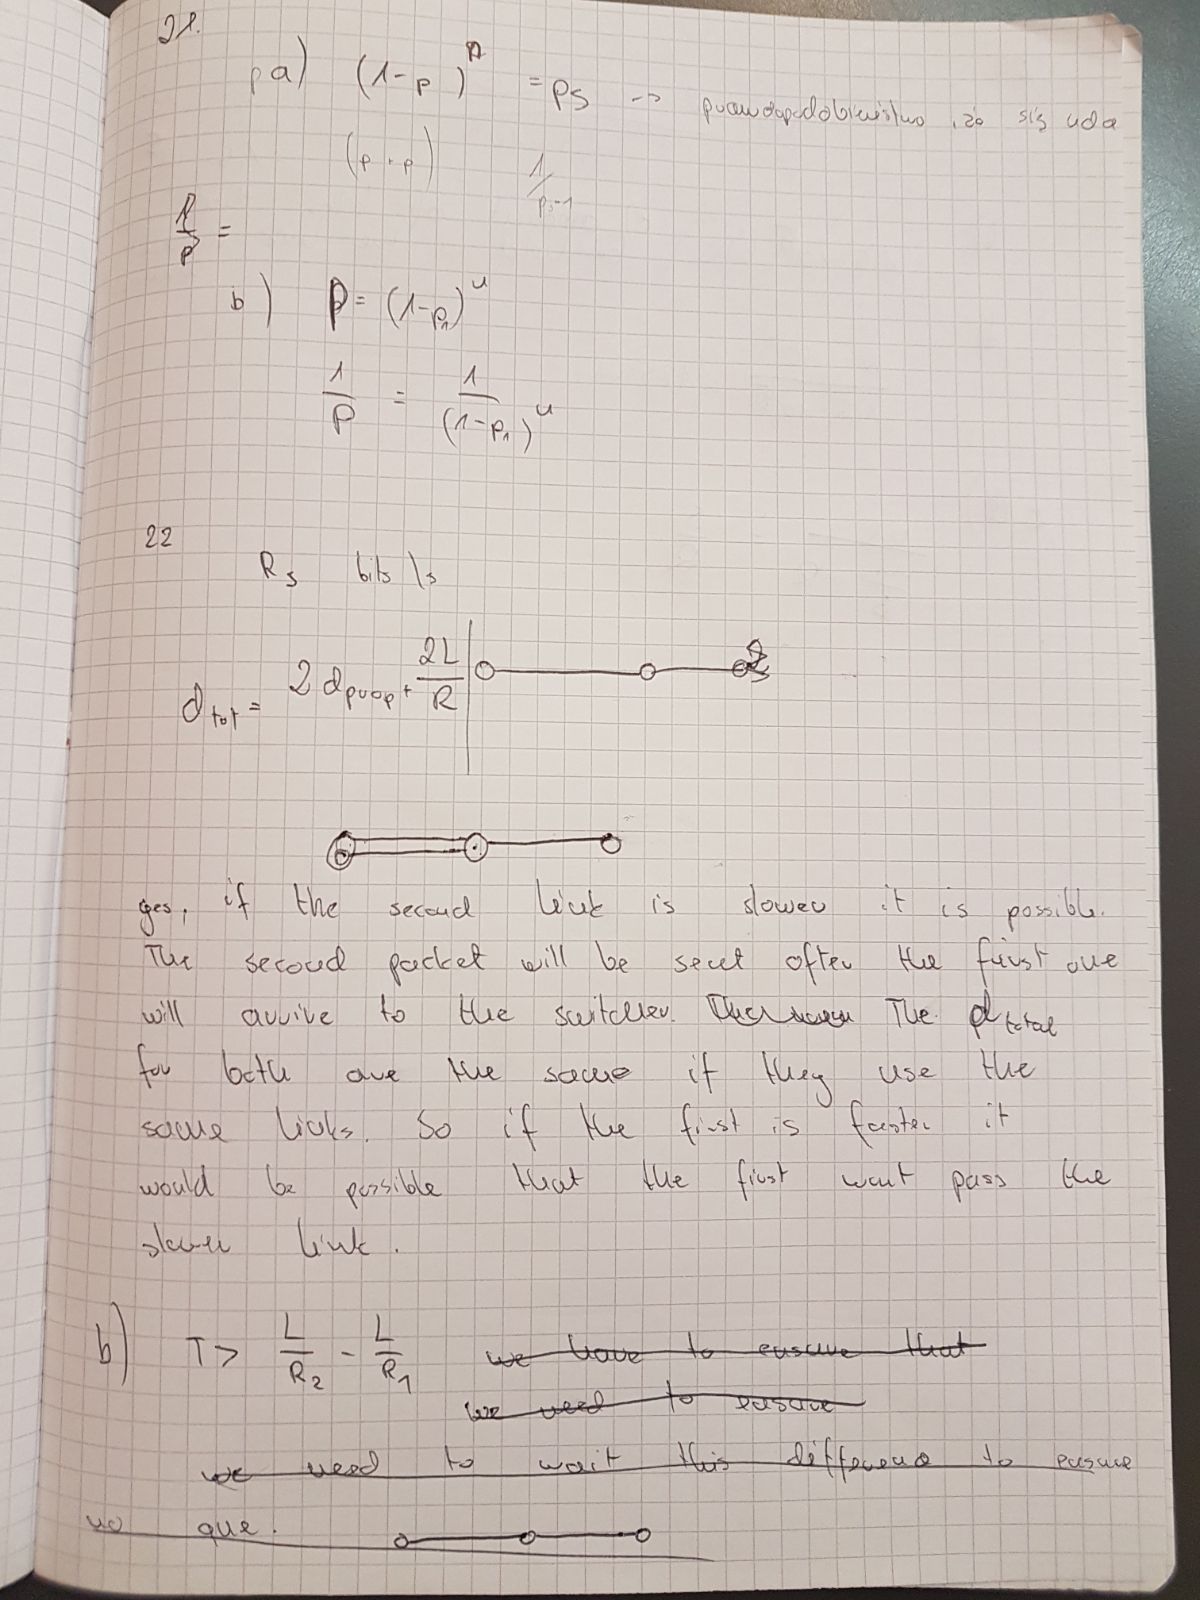 21.
a) (1-p)^n = ps → prawdopodobieństwo, że się uda
(p · p) 1/ps-1
1/p =
b) P = (1-p₁)^n
1/P = 1/(1-p₁)^n
22
Rs bits \s
d tot = 2 dprop + 2L/R
yes, if the second link is slower it is possible.
The second packet will be sent after the first one
will arrive to the switcher. The d total
for both are the same if they use the
same links. So if the first is faster it
would be possible that the first wont pass the
slower link.
b) T > L/R₂ - L/R₁ we have to ensure that
we need to ensure
we need to wait this difference to ensure
no que.